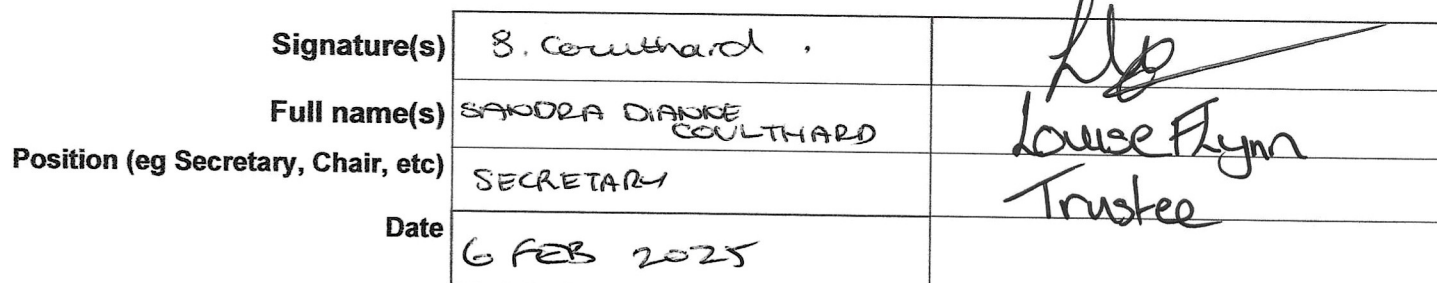 Signature(s) S. Coulthard.
Full name(s) SANDRA DIANNE
COULTHARD Louise Flynn
Position (eg Secretary, Chair, etc) SECRETARY Trustee
Date 6 FEB 2025